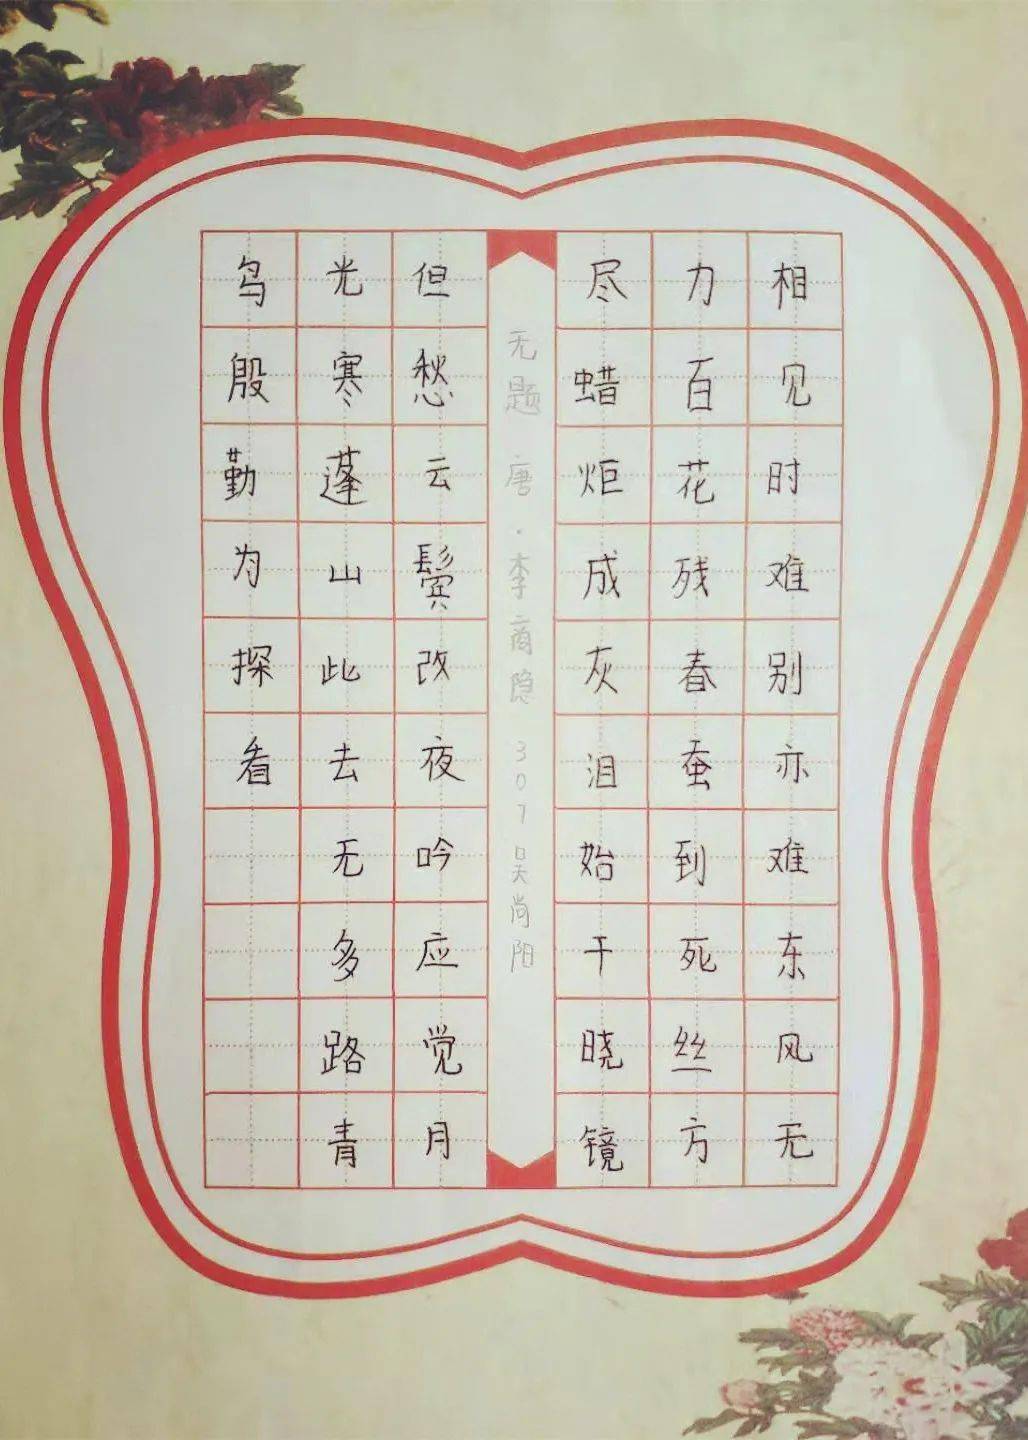 相见时难别亦难东风无
力百花残春蚕到死丝方
尽蜡炬成灰泪始干晓镜
无题 唐·李商隐 307吴尚阳
但愁云鬓改夜吟应觉月
光寒蓬山此去无多路青
鸟殷勤为探看